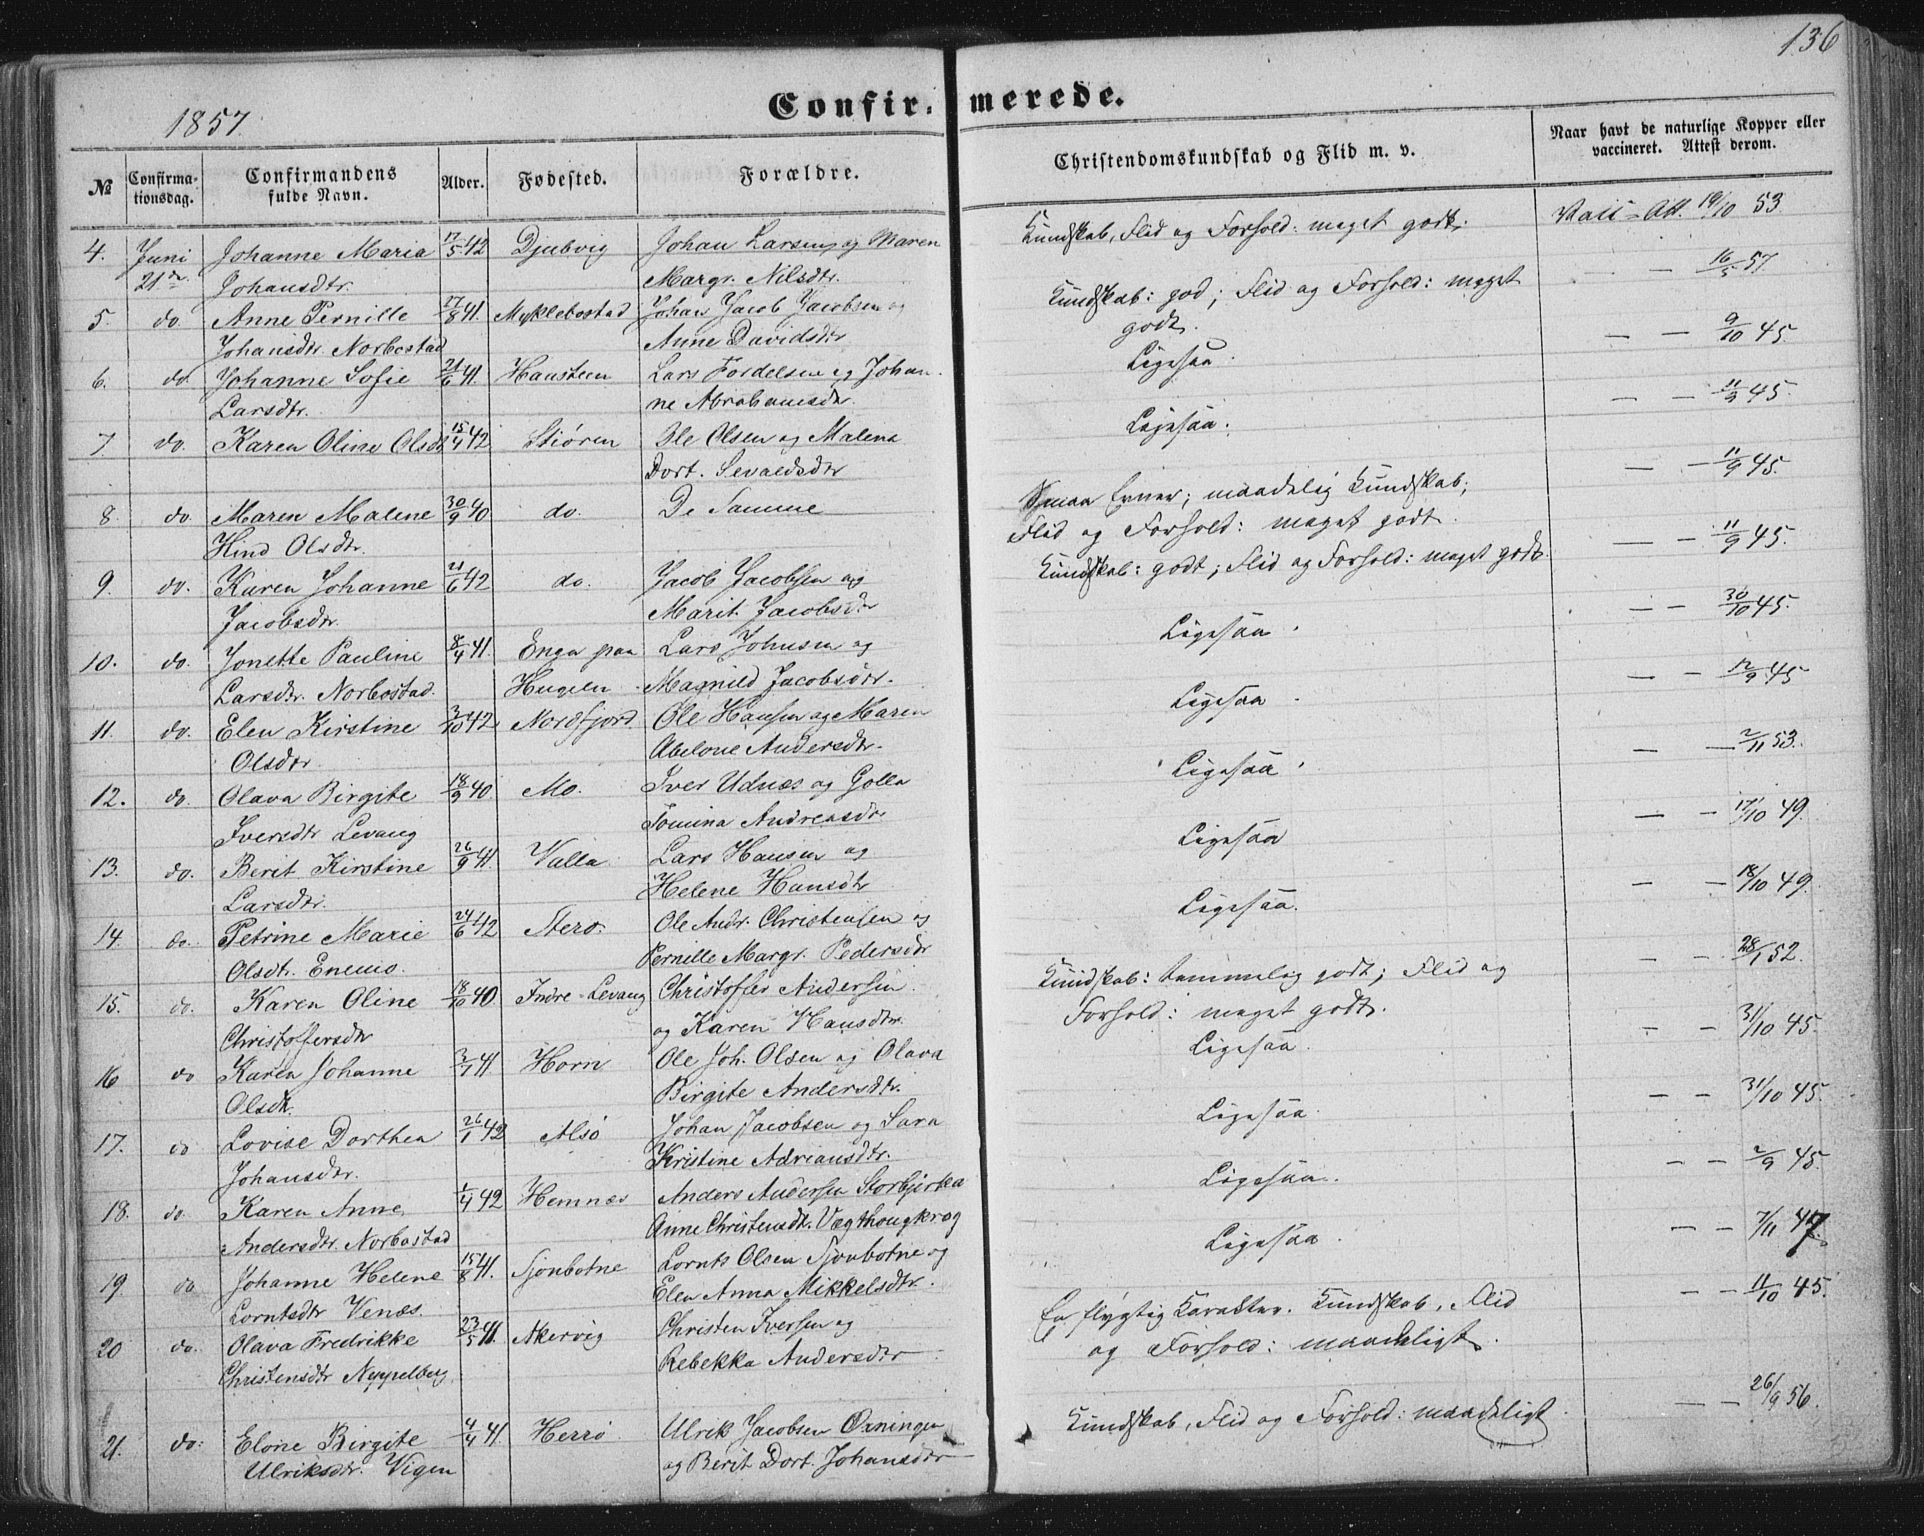 136
1857
Confir- merede.
№ Confirmationsdag. Confirmandens fulde Navn. Alder. Fødested. Forældre. Christendomskundskab og Flid m. v. Naar havt de naturlige Kopper eller vaccineret. Attest derom.
4. Juni Johanne Maria 17/5 42 Djubvig Johan Larsen og Maren Kundskab, Flid og Forhold: meget godt. Vacc - Att. 19/10 53
21de Johansdtr. Margr. Nilsdtr.
5. do. Anne Pernille 27/8 41. Myklebostad Johan Jacob Jacobsen og Kundskab: god; Flid og Forhold: meget — — 16/5 57
Johansdtr. Norbostad Anne Davidsdtr godt.
6. do. Johanne Sofie 21/6 41. Hausteen Lars Fordelsen og Johan- Ligesaa. — — 9/10 45
Larsdtr. ne Abrahamsdr.
7 do. Karen Oline Olsdt 15/4 42 Stiøren Ole Olsen og Malena Ligesaa. — — 11/9 45
Dort. Sevaldsdtr
8. do. Maren Malene 30/9 40 do. De Samme Smaa Evner; maadelig Kundskab; — — 11/9 45.
Hind Olsdtr. Flid og Forhold: meget godt.
9. do. Karen Johanne 21/6 42 do. Jacob Jacobsen og Kundskab: godt; Flid og Forhold: meget godt. — — 11/9 45.
Jacobsdtr Marit Jacobsdr
10. do. Jonette Pauline 8/4 41. Enga paa Lars Johnsen og Ligesaa. — — 30/10 45.
Larsdtr. Norbostad. Hugeln Magnild Jacobsdtr.
11. do. Elen Kirstine 3/10 42 Nordfjord. Ole Hansen og Maren Ligesaa. — — 12/9 45
Olsdtr Abelone Andersdtr.
12. do. Olava Birgite 18/9 40 Mo. Iver Udnæs og Golla Ligesaa. — — 2/11 53.
Iversdtr Levang Tomina Andreasdtr
13. do. Berit Kirstine 26/9 41. Valla Lars Hansen og Ligesaa — — 17/10 49.
Larsdtr. Helene Hansdtr
14. do. Petrine Marie 24/6 42 Stero. Ole Andr. Christensen og Ligesaa. — — 18/10 49.
Olsdt. Enemo. Pernille Margr. Pedersdtr
15. do. Karen Oline 18/10 40. Indre-Levang Christoffer Andersen Kundskab: temmelig godt; Flid og — — 28/1 52.
Christoffersdtr og Karen Hansdtr. Forhold: meget godt.
16 do Karen Johanne 3/1 41 Horn Ole Joh. Olsen og Olava Ligesaa. — — 31/10 45.
Olsdt. Birgite Andersdtr.
17. do Lovise Dorthea 26/1 42 Alsø Johan Jacobsen og Sara Ligesaa. — — 31/10 45.
Johansdtr. Kristine Adriansdtr.
18. do Karen Anne 1/4 42 Hemnæs Anders Andersen Storbjerka Ligesaa. — — 2/9 45.
Andersdtr. Norbostad Anne Christensdt. Vægthougkrog
19. do Johanne Helene 15/8 41. Sjonbotne Lornts Olsen Sjonbotne og Ligesaa. — — 7/11 47
Lorntsdtr Venæs. Elen Anna Mikkelsdtr.
20 do. Olava Fredrikke 23/5 41. Akervig Christen Iversen og En flygtig Karakter. Kundskab, Flid — — 11/10 45.
Christensdtr Neppelberg Rebekka Andersdtr og Forhold: maadeligt.
21. do. Elone Birgite 4/4 41 Herrø Ulrik Jacobsen Oxningen Kundskab, Flid og Forhold: maadeligt. — — 26/9 56.
Ulriksdtr. Vigen og Berit Dort. Johansdtr